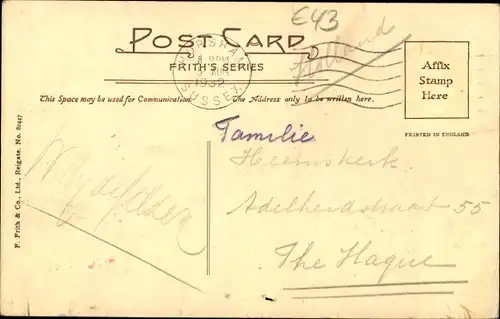 €43
POST CARD
FRITH'S SERIES
HORSHAM
1932
SUSSEX
Holland
Affix
Stamp
Here
This Space may be used for Communication
The Address only to be written here.
PRINTED IN ENGLAND
F. Frith & Co., Ltd., Reigate. No.
Familie
Heemskerk
Adelheidstraat 55
The Hague